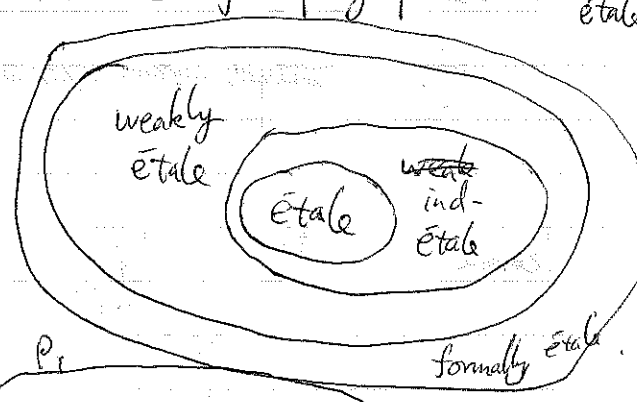 étale
weakly
étale
étale
ind-
étale
formally étale.